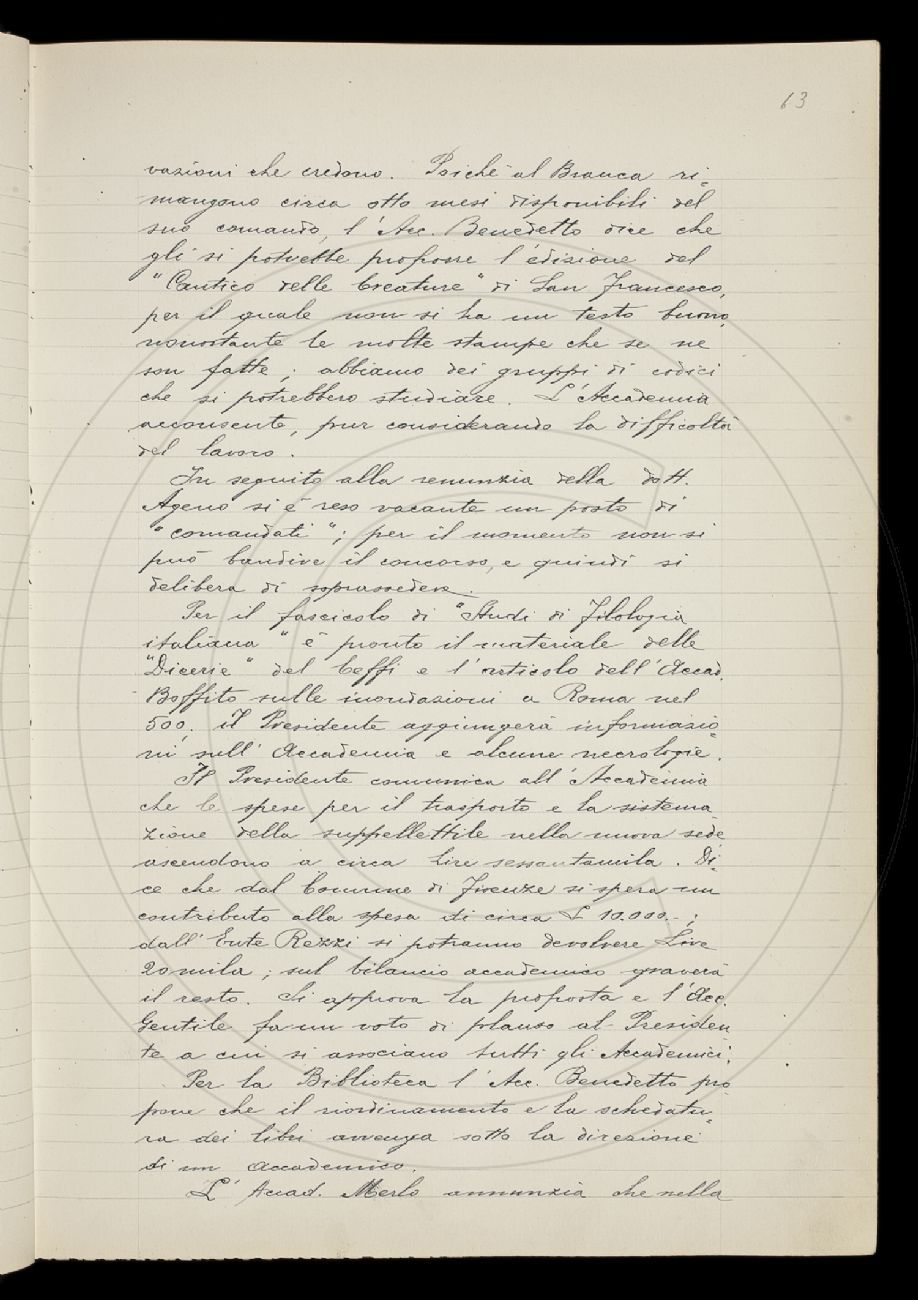 63
vazioni che credono. Poiché al Branca ri-
mangono circa otto mesi disponibili del
suo comando, l'Acc. Benedetto dice che
gli si potrebbe proporre l'edizione del
"Cantico delle Creature" di San Francesco,
per il quale non si ha un testo buono,
nonostante le molte stampe che se ne
son fatte; abbiamo dei gruppi di codici
che si potrebbero studiare. L'Accademia
acconsente, pur considerando la difficoltà
del lavoro.
In seguito alla renunzia della dott.
Ageno si è reso vacante un posto di
"comandati"; per il momento non si
può bandire il concorso, e quindi si
delibera di soprassedere.
Per il fascicolo di "Studi di Filologia
italiana" è pronto il materiale delle
"Dicerie" del Ceffi e l'articolo dell'Accad.
Boffito sulle inondazioni a Roma nel
500. il Presidente aggiungerà informazio-
ni sull'Accademia e alcune necrologie.
Il Presidente comunica all'Accademia
che le spese per il trasporto e la sistema-
zione della suppellettile nella nuova sede
ascendono a circa Lire sessantamila. Di-
ce che dal Comune di Firenze si spera un
contributo alla spesa di circa £ 10.000.-;
dall'Ente Rezzi si potranno devolvere Lire
20 mila; sul bilancio accademico graverà
il resto. Si approva la proposta e l'Acc.
Gentile fa un voto di plauso al Presiden-
te a cui si associano tutti gli Accademici.
Per la Biblioteca l'Acc. Benedetto pro-
pone che il riordinamento e la schedatu-
ra dei libri avvenga sotto la direzione
di un accademico.
L'Accad. Merlo annunzia che nella